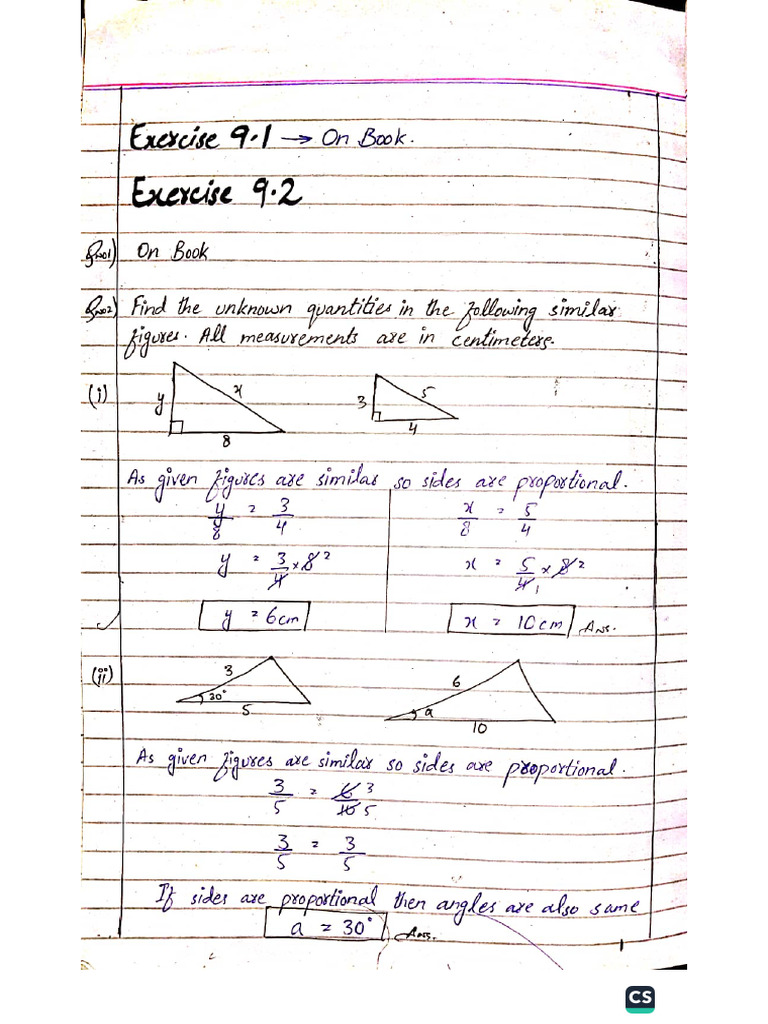 Exercise 9.1 → On Book.
Exercise 9.2
Qno1) On Book
Qno2) Find the unknown quantities in the following similar
figures. All measurements are in centimeters.
(i) y x 8 3 5 4
As given figures are similar so sides are proportional.
y/8 = 3/4 x/8 = 5/4
y = 3/4 × 8 2 x = 5/4 1 × 8 2
y = 6cm x = 10cm Ans.
(ii) 3 30° 5 6 a 10
As given figures are similar so sides are proportional.
3/5 = 6/10 3 5
3/5 = 3/5
If sides are proportional then angles are also same
a = 30° Ans.
CS